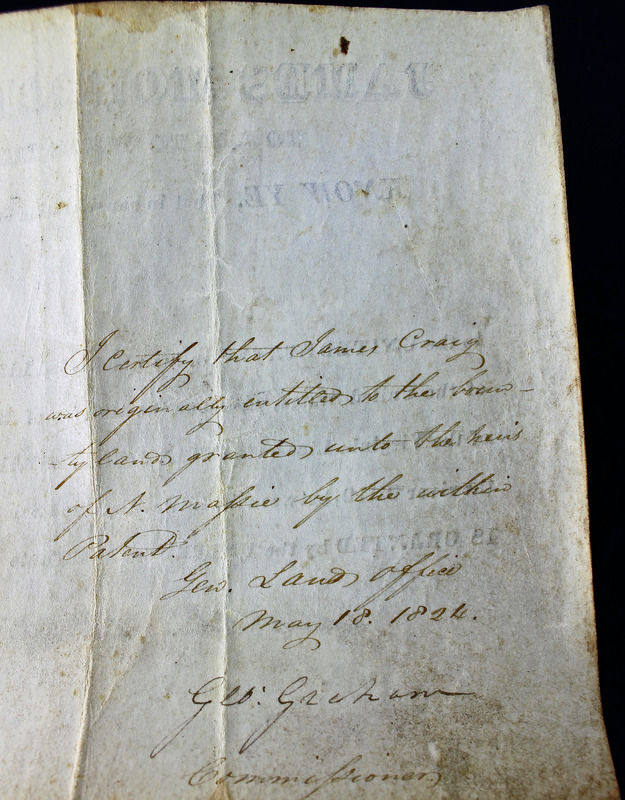 I certify that James Craig
was originally entitled to the boun-
ty lands granted unto the heirs
of N. Massie by the within
Patent.
Gen. Land Office
May 18. 1824.
Geo: Graham
Commissioner